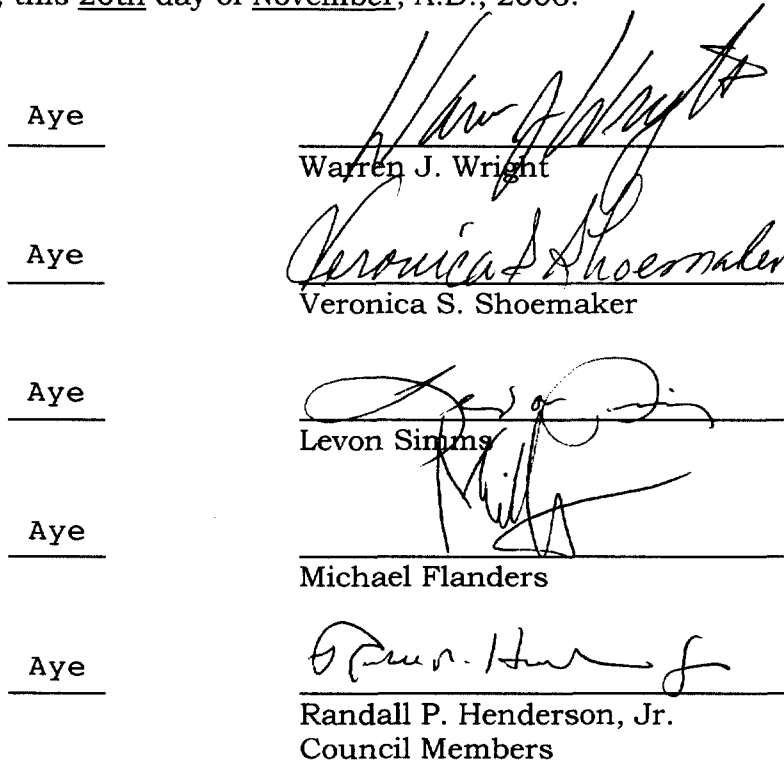 day of November, A.D.,
Aye
Warren J. Wright
Aye Veronica S Shoemaker
Veronica S. Shoemaker
Aye
Levon Simms
Aye
Michael Flanders
Aye
Randall P. Henderson, Jr.
Council Members